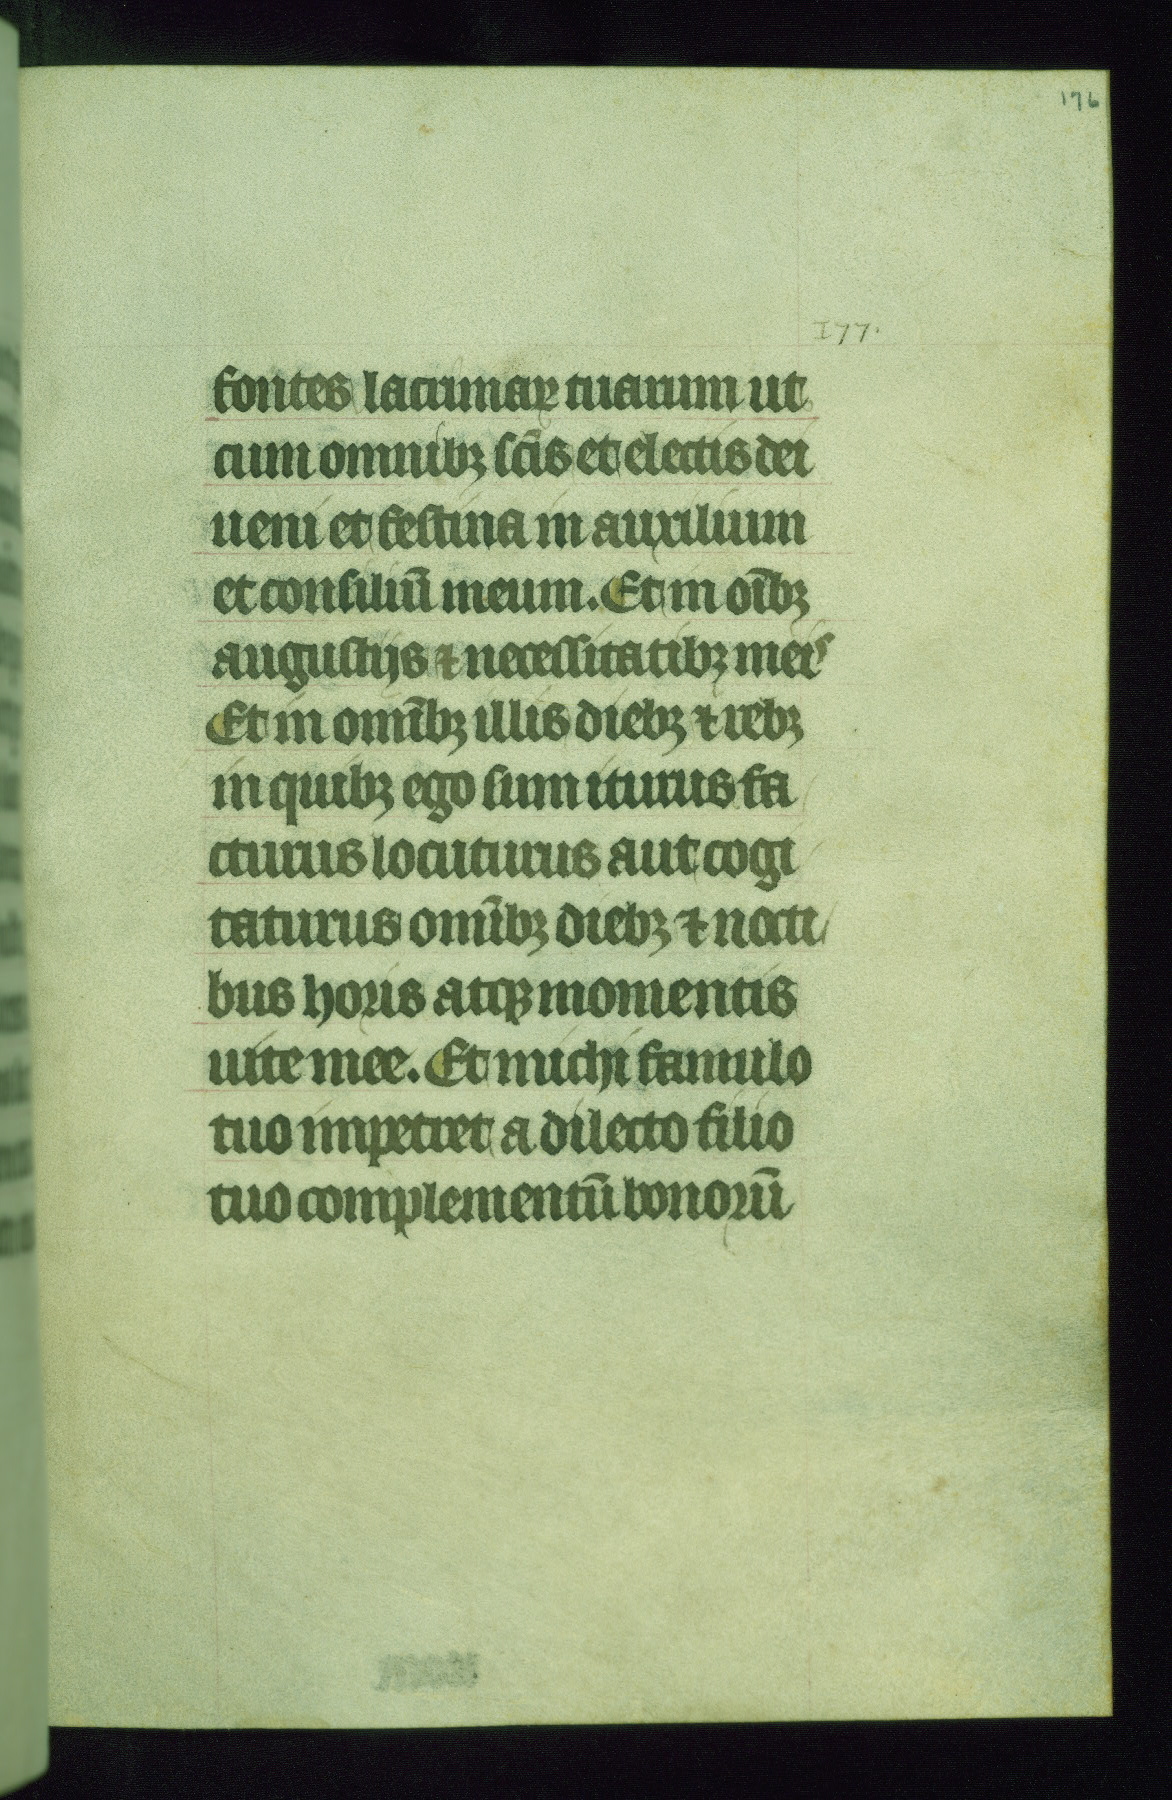 176
177.
fontes lacrimaꝝ tuarum ut
cum omnibꝫ sc̄is et electis dei
ueni et festina in auxilium
et consiliū meum. Et in oībꝫ
augustijs ⁊ necessitatibꝫ meis
Et in omībꝫ illis diebꝫ ⁊ rebꝫ
in quibꝫ ego sum iturus fa
cturus locuturus aut cogi
taturus omībꝫ diebꝫ ⁊ nocti
bus horis atqꝫ momentis
uite mee. Et michi famulo
tuo impetret a dilecto filio
tuo complementū bonorū